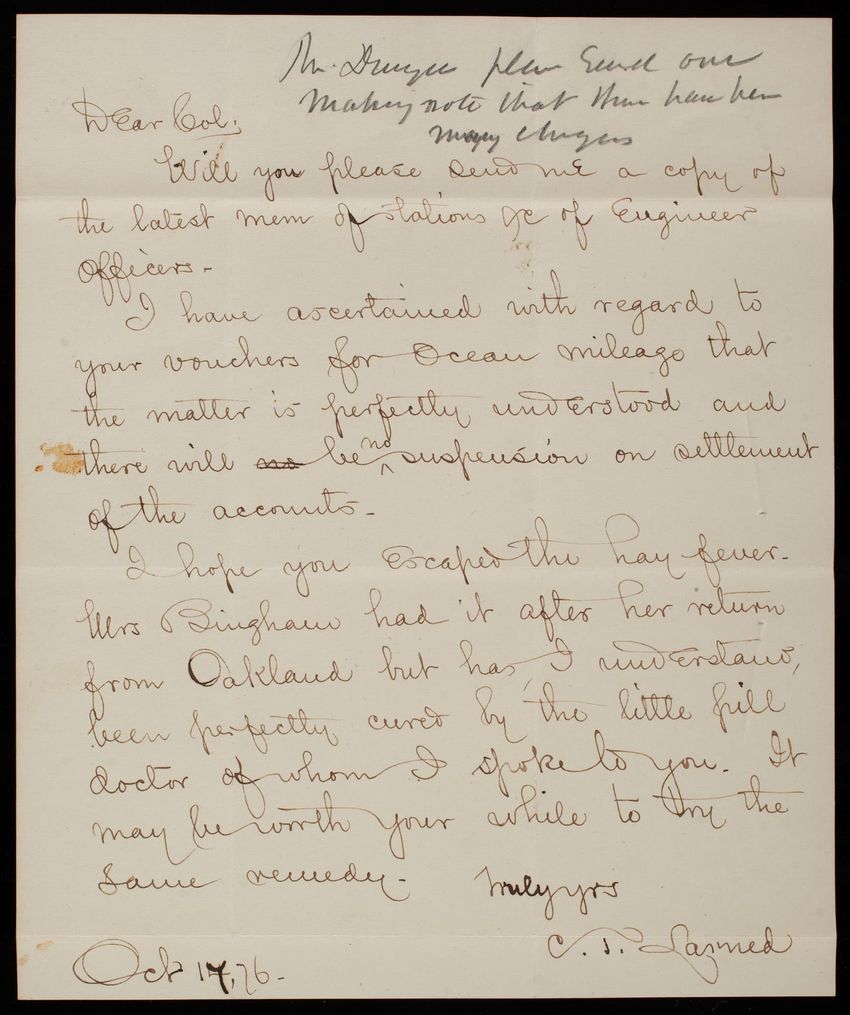 Mr. Dwyer please Send one
Making note that there have been
many changes
Dear Col;
Will you please send me a copy of
the latest mem of stations &c of Engineer
Officers-
I have ascertained with regard to
your vouchers for Ocean mileage that
the matter is perfectly understood and
there will no be no suspension on settlement
of the accounts-
I hope you Escaped the hay fever-
Mrs Bingham had it after her return
from Oakland but has, I understand,
been perfectly cured by the little pill
doctor of whom I spoke to you. It
may be worth your while to try the
same remedy-
truly yrs
C. T. Larned
Oct 17, 76-